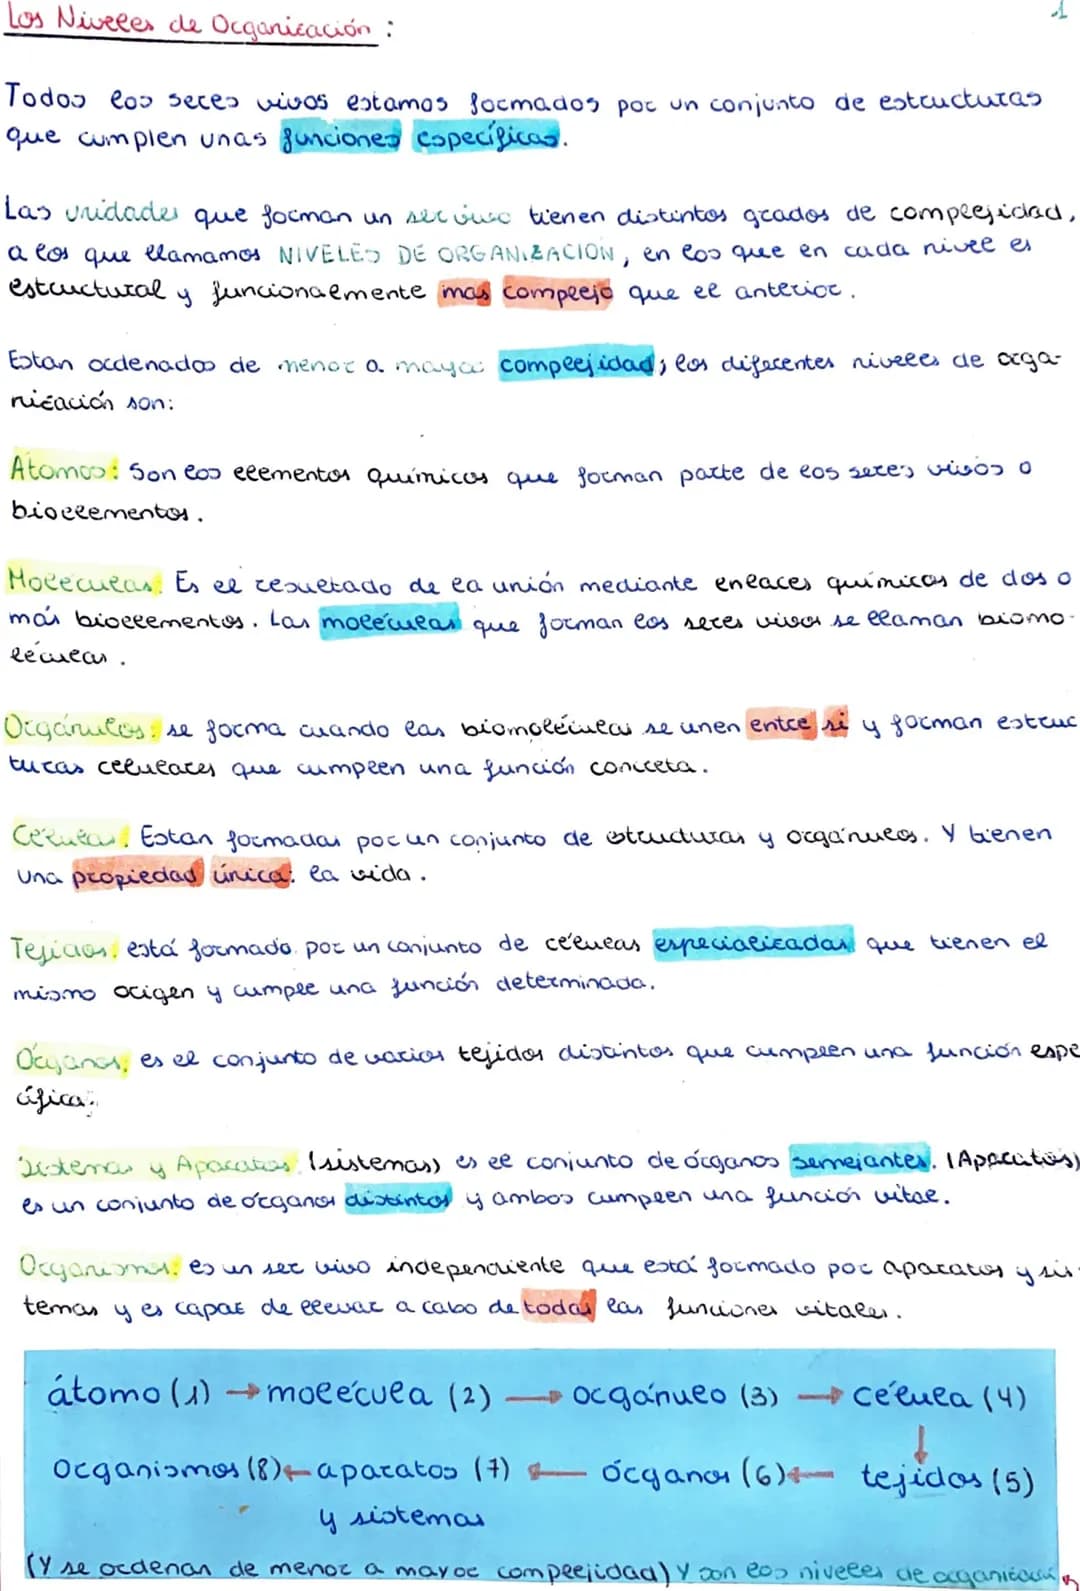 Los Niveles de Organización :
1
Todos los seres vivos estamos formados por un conjunto de estructuras
que cumplen unas funciones específicas.
Las unidades que forman un ser vivo tienen distintos grados de complejidad,
a los que llamamos NIVELES DE ORGANIZACIÓN, en los que en cada nivel es
estructural y funcionalmente mas complejo que el anterior.
Estan ordenados de menor a mayor complejidad; los diferentes niveles de orga-
nización son:
Átomos: Son los elementos químicos que forman parte de los seres vivos o
bioelementos.
Moléculas: Es el resultado de la unión mediante enlaces químicos de dos o
más bioelementos. Las moléculas que forman los seres vivos se llaman biomo-
léculas.
Orgánulos: se forma cuando las biomoléculas se unen entre si y forman estruc
turas celulares que cumplen una función concreta.
Células: Estan formadas por un conjunto de estructuras y orgánulos. Y tienen
una propiedad única: la vida.
Tejidos: está formado por un conjunto de células especializadas que tienen el
mismo origen y cumple una función determinada.
Órganos: es el conjunto de varios tejidos distintos que cumplen una función espe
cífica.
Sistemas y Aparatos: (sistemas) es el conjunto de órganos semejantes. (Aparatos)
es un conjunto de órganos distintos y ambos cumplen una función vital.
Organismos: es un ser vivo independiente que está formado por aparatos y sis-
temas y es capaz de llevar a cabo de todas las funciones vitales.
átomo (1) → molécula (2) → orgánulo (3) → célula (4)
↓
Organismos (8) ← aparatos (7) ← órganos (6) ← tejidos (5)
y sistemas
(Y se ordenan de menor a mayor complejidad) Y son los niveles de organización